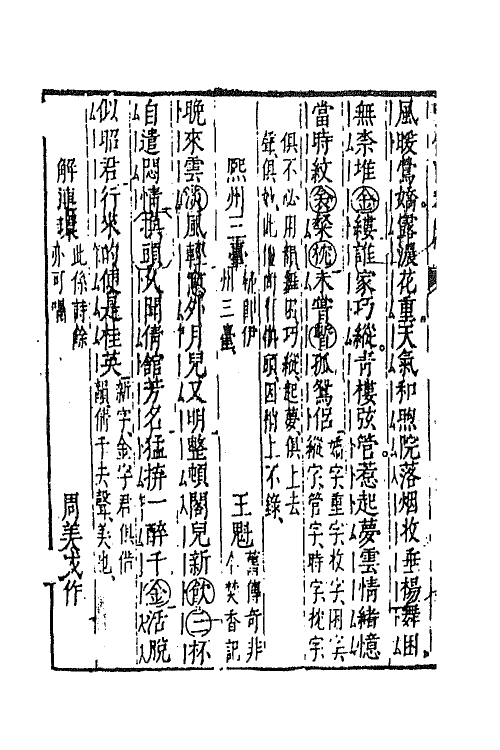 風暖鶯嬌露濃花重天氣和煦院落烟收垂楊舞困
無柰堆金縷誰家巧縱青樓弦管惹起夢雲情緒憶
當時紋衾粲枕未嘗暫孤鴛侶
嬌字重字收字困字
縱字管字時字枕字
俱不必用韻舞困巧縱起夢俱上去
聲俱妙此
頭因稍上不錄
熙州三臺
即伊
州三臺
王魁
舊傳奇非
今焚香記
晚來雲淡風輕窗外月兒又明整頓閣兒新飲二杯
自遣悶情換頭久聞倩館芳名猛拚一醉千金活脫
似昭君行來的便是桂英
新字金字君俱借
韻倩千去聲美也
解連環
此係詩餘
亦可唱
周美成作